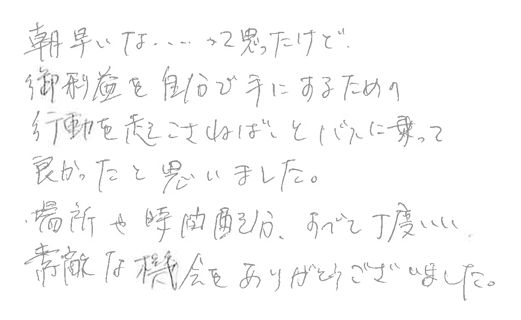 朝早いな....って思ったけど、
御利益を自分で手にするための
行動を起こさねば、とバスに乗って
良かったと思いました。
場所や時間配分、すべて丁度いい
素敵な機会をありがとうございました。